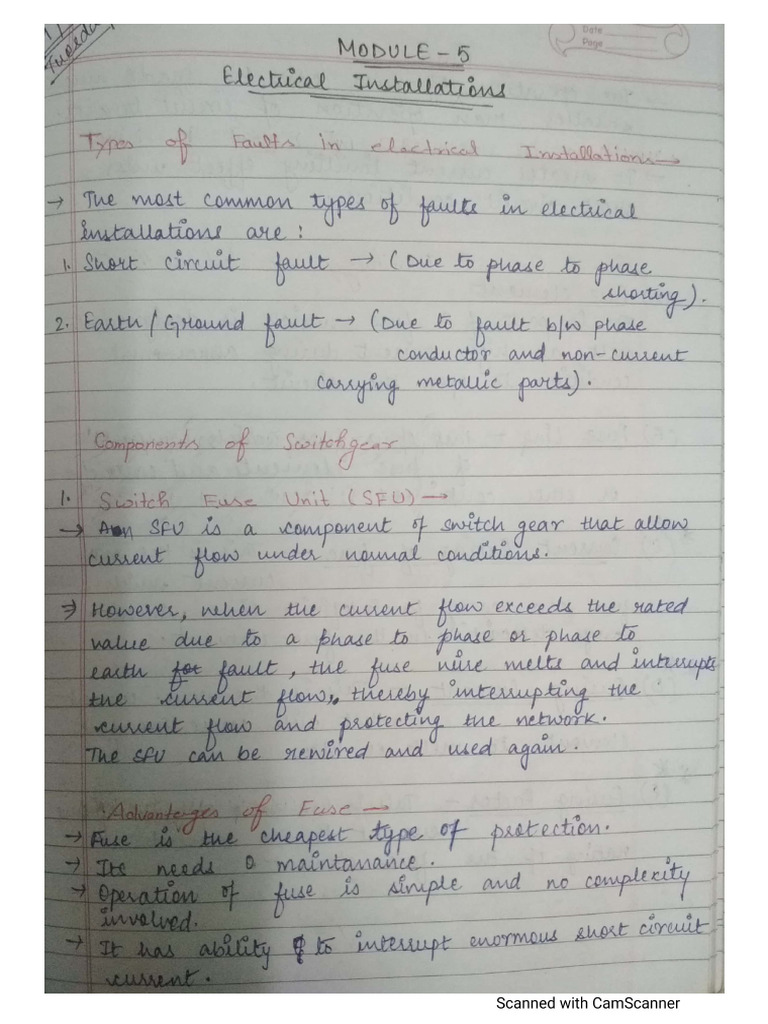 Tuesday
Date
Page
MODULE - 5
Electrical Installations
Types of Faults in electrical Installations →
→ The most common types of faults in electrical
installations are :
1. Short circuit fault → (Due to phase to phase
shorting).
2. Earth / Ground fault → (Due to fault b/w phase
conductor and non-current
carrying metallic parts).
Components of Switchgear
1. Switch Fuse Unit (SFU) →
→ An SFU is a component of switch gear that allow
current flow under normal conditions.
⇒ However, when the current flow exceeds the rated
value due to a phase to phase or phase to
earth fault, the fuse wire melts and interrupts
the current flow, thereby interrupting the
current flow and protecting the network.
The SFU can be rewired and used again.
Advanterges of Fuse →
→ Fuse is the cheapest type of protection.
→ Its needs 0 maintanance.
→ Operation of fuse is simple and no complexity
involved.
→ It has ability to interrupt enormous short circuit
current.
Scanned with CamScanner